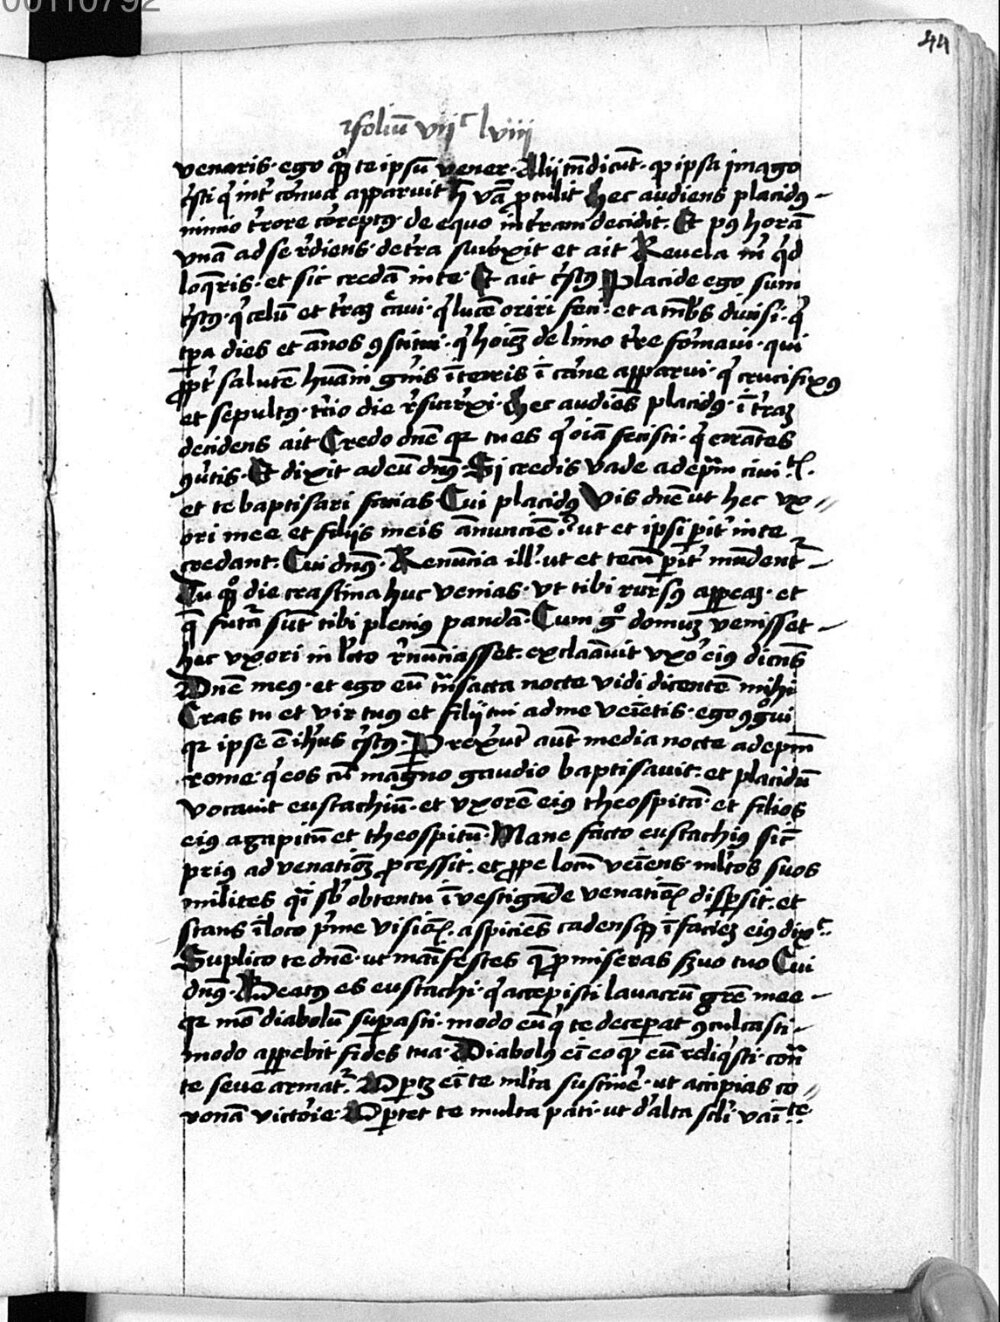 00110792
44
foliũ vijᶜ lviii
venaris · ego qͦꝫ te ipsũ vener · Alij tñ dicũt · ꝙ ipsa jmago
xp̃i q̃ int̾ cornua apparuit h̃ v̾ba ꝓtulit hec audiens placidꝰ
nimio t̾rore correptꝰ · de equo in t̾ram decidit · Et pꝰ horã
vnã ad se rediens · de t̾ra surrexit et ait Revela m̾ q̾d
loq̃ris · et sic credã in te · Et ait xp̃s Placide ego sum
xp̃s · q̾ celũ et t̾raꝫ c̾avi · q̾ lucẽ oriri feci · et a tenebris divisi · q̾
tp̃a dies et ãnos ꝯstitui · q̾ hoiẽꝫ de limo t̾re formavi · qui
ꝓpt̾ salutẽ humãi gn̾is ĩ terris ĩ carne apparui · q̾ crucifixꝰ
et sepultꝰ · t̾cio die resurrexi · Hec audiẽs placidꝰ · ĩ t̾raꝫ
decidens ait Credo dñe qr tu es q̾ oĩa fecisti · q̾ errãtes
ꝯv̾tis · Et dixit ad eũ dñs · Si credis vade ad ep̃m civit̃
et te baptisari facias · Cui placidꝰ Vis dñe ut hec vx〃
ori mee et filijs meis ãnunciẽ · ut et ipsi pit̾ in te
credant · Cui dñs · Renũcia ill̾ · ut et tecũ pit̾ mũdent̾
Tu qͦꝫ die crastina huc venias · vt tibi rursꝰ appeaꝫ · et
q̃ futã sũt tibi pleniꝰ pandã · Cum gͦ domuꝫ venisset
hec vxori in l̾cto r̾nũciasset · exclãavit vxor eiꝰ dicẽs
Dñe meꝰ · et ego eũ trãsacta nocte vidi dicentẽ mihi
Cras tu et vir tuꝰ et filij tui ad me veĩetis · ego ꝯgͦvi
qr ipse ẽ ih̾us xp̃s · Prexer̃t aut̃ media nocte ad ep̃m
rome · q̾ eos cũ magno gaudio baptisavit · et placidũ
vocavit eustachiũ · et vxorẽ eiꝰ theospitã · et filios
eiꝰ agapitũ et theospitũ · Mane facto eustachiꝰ sic̃
priꝰ ad venatiõꝫ ꝓcessit · et ꝓpe locũ veĩens · ml̾tos suos
milites q̃i sb̾ obtentu ĩvestigãde venatiõis disp̃sit · et
stans ĩ loco p̾me visiõis · aspiciẽs cadensqꝫ ĩ faciẽ eiꝰ dixᵗ
Suplico te dñe · ut mãifestes q̃ ꝓmiseras s̾vo tuo Cui
dñs · Beatꝰ es eustachi · q̾ accepisti lavacrũ gr̃e mee
qr mõ diabolũ superasti · modo eũ q̾ te deceperat ꝯculcasti
modo appebit fides tua · Diabolꝰ eĩ eo qꝙ eũ reliq̾sti · cont̃
te seve armat̾ · Optꝫ eĩ te ml̾ta sustinẽ · ut accipias co〃
ronã victorie · Optet te multa pati · ut d̾ alta scl̾i vãite